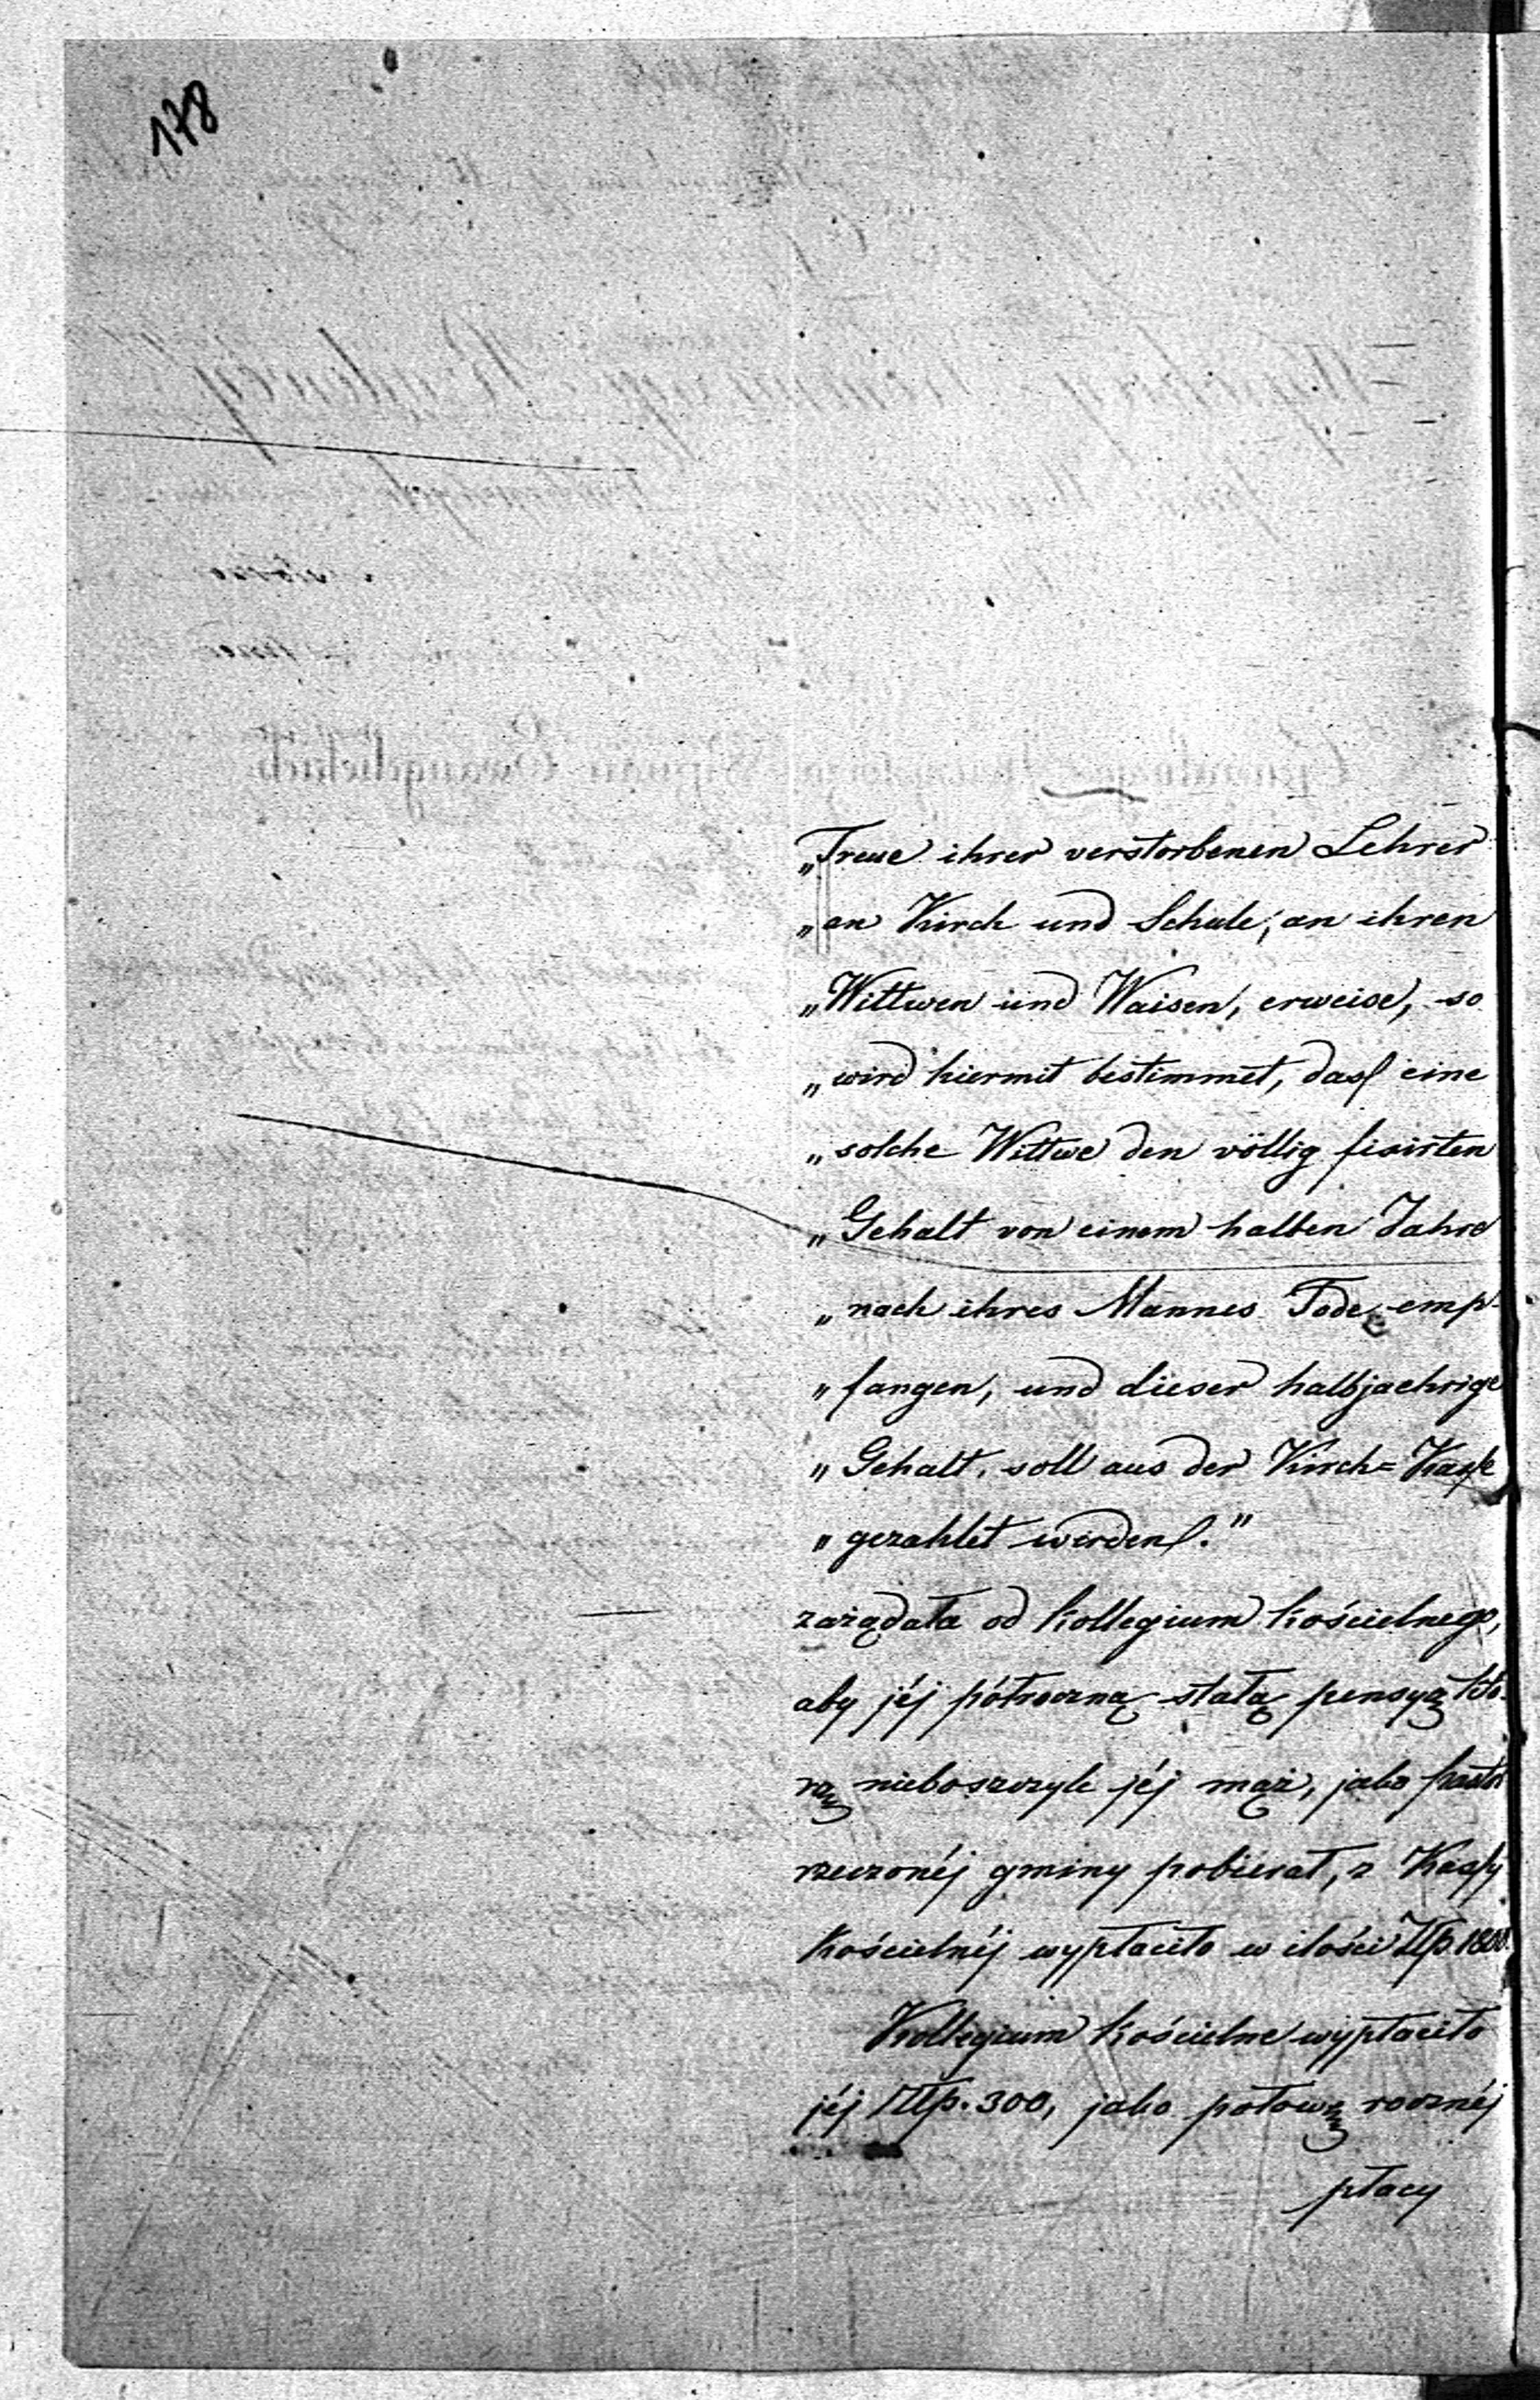 178
„Treue ihrer verstorbenen Lehrer
„an Kirch und Schule, an ihren
„Wittwen und Waisen, erweise, so
„wird hiermit bestimmet, dass eine
„solche Wittwe den völlig fixirten
„Gehalt von einem halben Jahre
„nach ihres Mannes Tode emp-
„fangen, und dieser halbjaehrige
„Gehalt, soll aus der Kirch=Kasse
„gezahlet werden."
zażądała od Kollegium Kościelnego,
aby jéj półroczną stałą pensyą któ-
rą nieboszczyk jéj mąż, jako pastor
rzeczonéj gminy pobierał, z Kassy
Kościelnéj wypłaciło w ilości Złp. 1800.
Kollegium Kościelne wypłaciło
jéj Złp. 300, jako połowę rocznéj
płacy